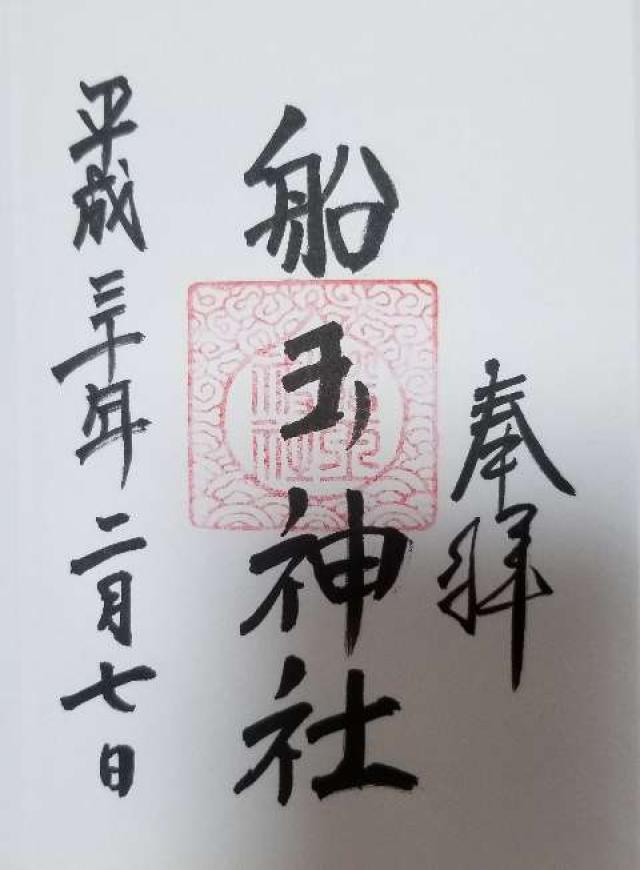 奉拝
船玉神社
平成三十年二月七日